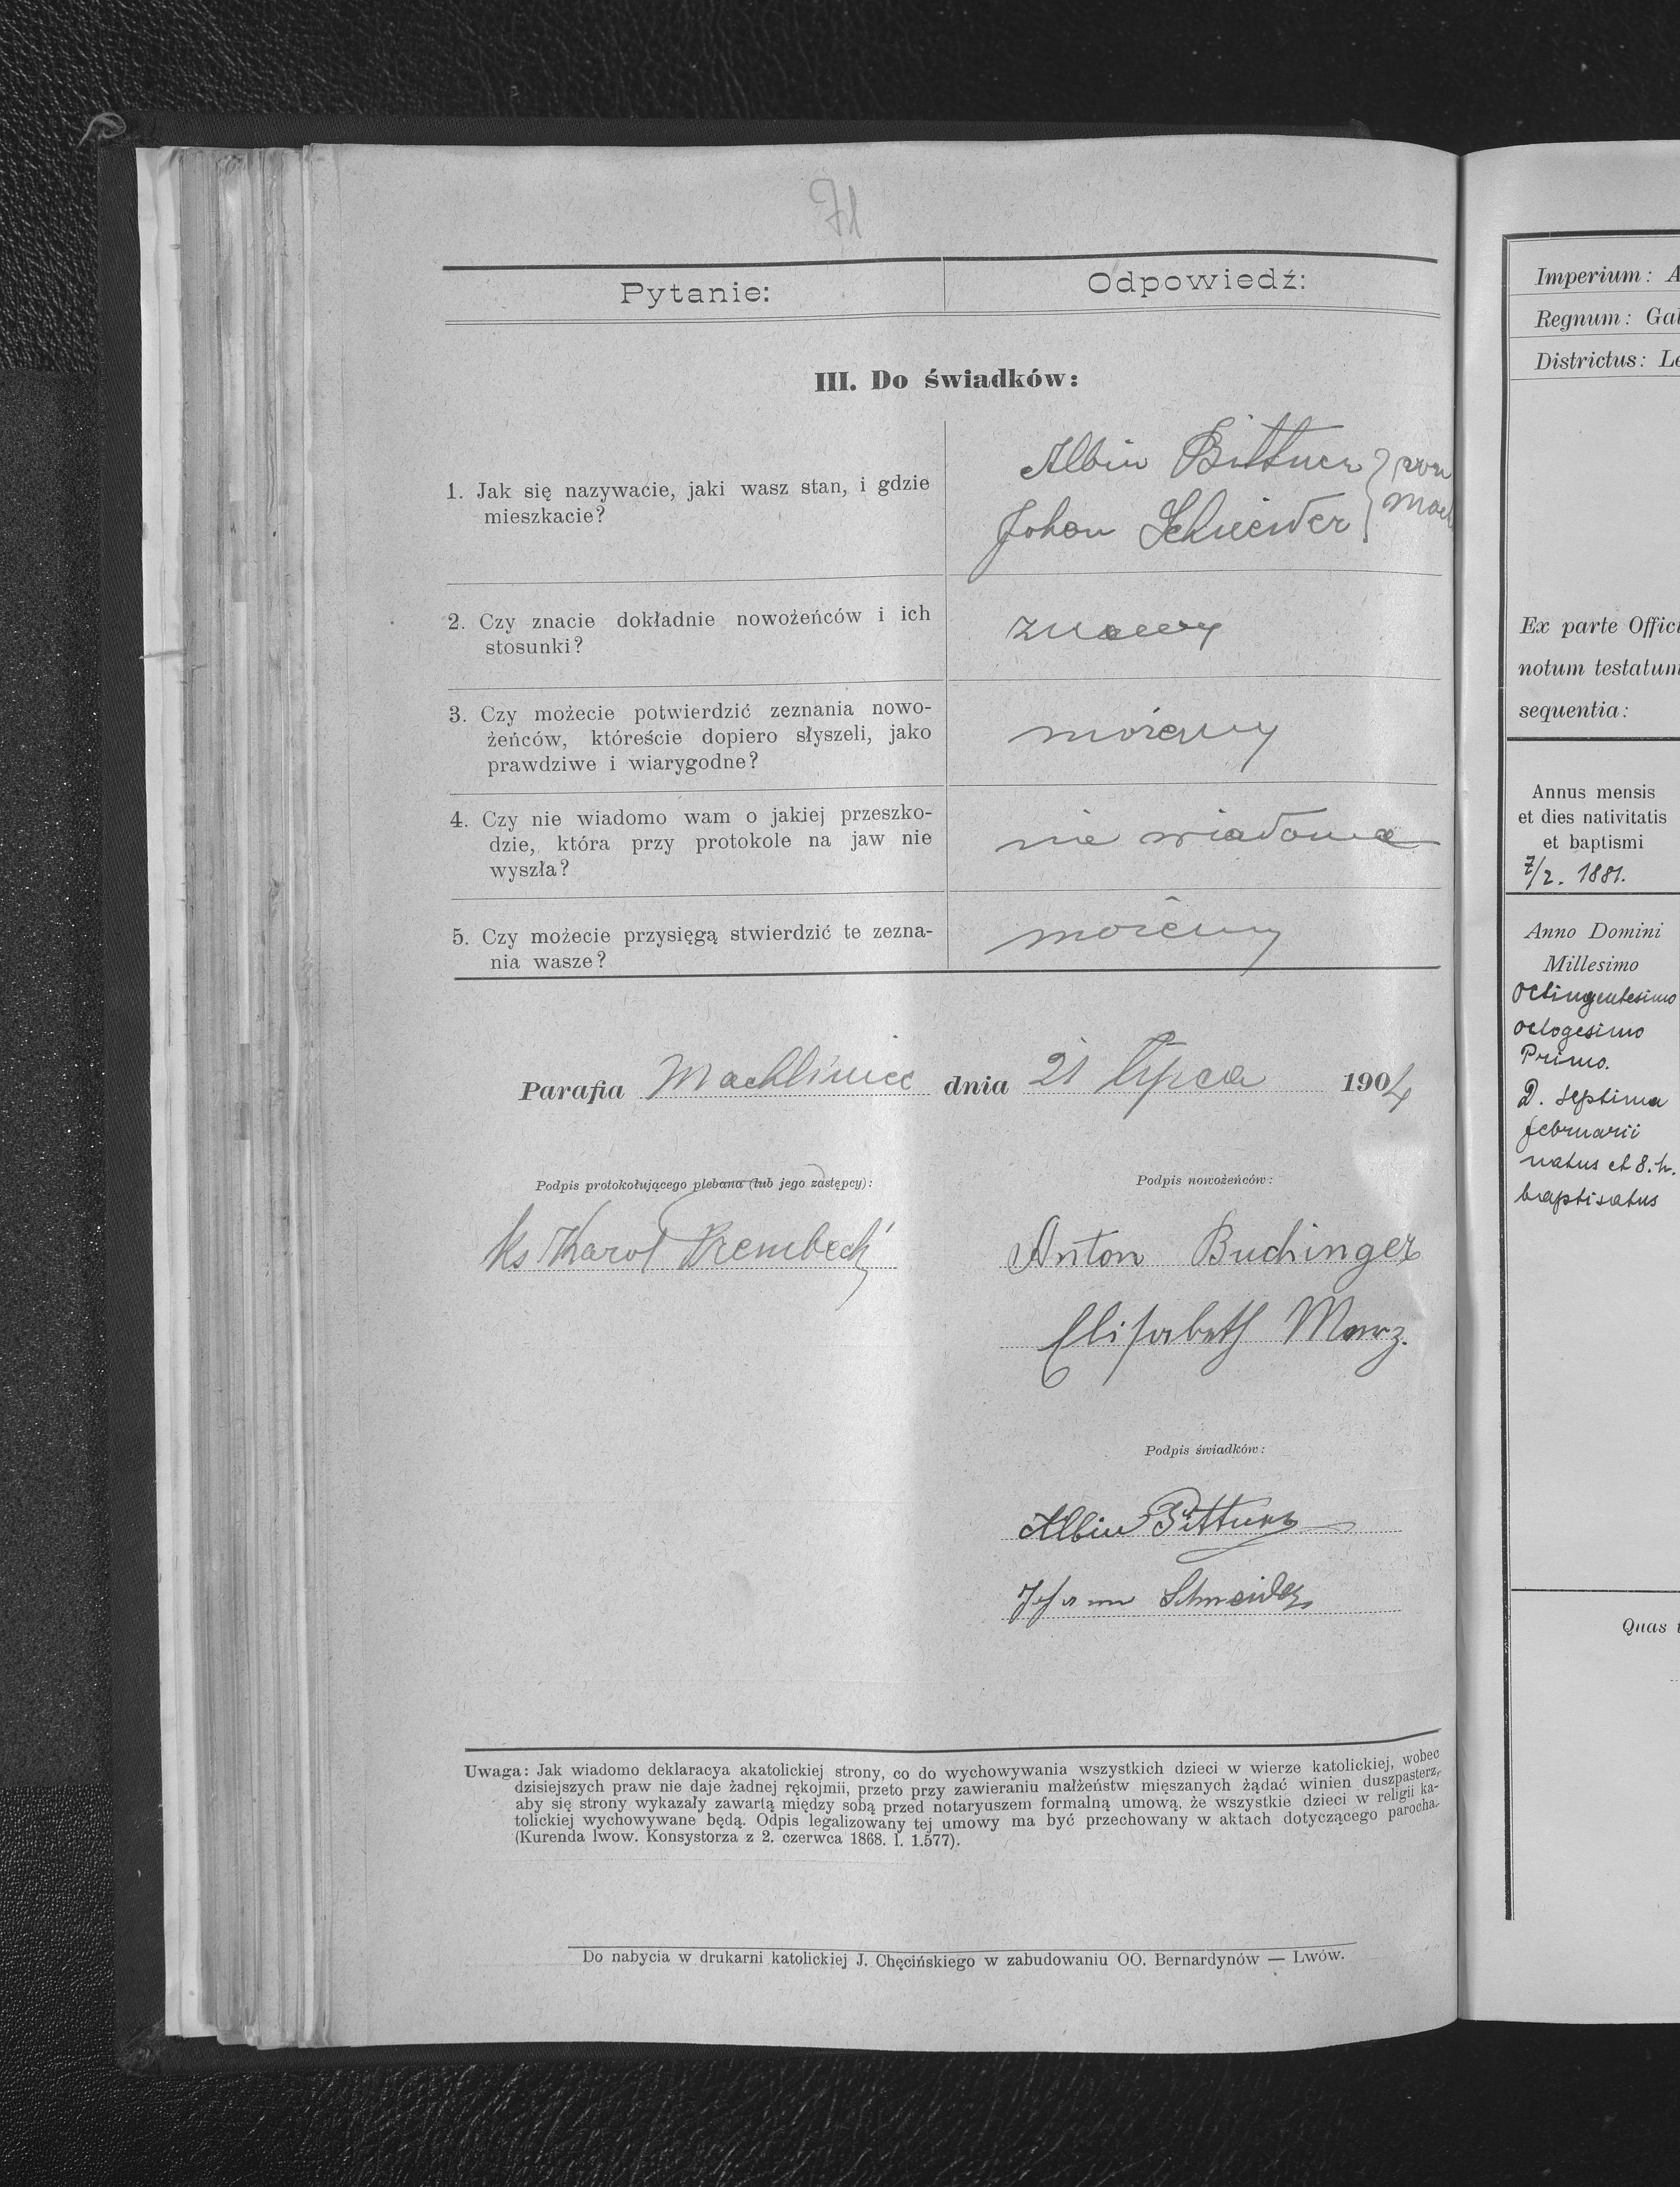 71
Pytanie:
Odpowiedź:
III. Do świadków:
1. Jak się nazywacie, jaki wasz stan, i gdzie
mieszkacie?
Albin Bittner
Johan Schneider
2. Czy znacie dokładnie nowożeńców i ich
stosunki?
znamy
3. Czy możecie potwierdzić zeznania nowo-
żeńców, któreście dopiero słyszeli, jako
prawdziwe i wiarygodne?
możemy
4. Czy nie wiadomo wam o jakiej przeszko-
dzie, która przy protokole na jaw nie
wyszła?
nie wiadomo
5. Czy możecie przysięgą stwierdzić te zezna-
nia wasze?
możemy
Parafia Machliniec dnia 21 lipca 1904
Podpis protokołującego plebana (lub jego zastępcy):
ks Karol
Podpis nowożeńców:
Anton Buchinger
Elisabeth Marz.
Podpis świadków:
Albin Bittner
Johann Schneider
Uwaga: Jak wiadomo deklaracya akatolickiej strony, co do wychowywania wszystkich dzieci w wierze katolickiej, wobec
dzisiejszych praw nie daje żadnej rękojmii, przeto przy zawieraniu małżeństw mięszanych żądać winien duszpasterz,
aby się strony wykazały zawartą między sobą przed notaryuszem formalną umową, że wszystkie dzieci w religii ka-
tolickiej wychowywane będą. Odpis legalizowany tej umowy ma być przechowany w aktach dotyczącego parocha.
(Kurenda lwow. Konsystorza z 2. czerwca 1868. l. 1.577).
Do nabycia w drukarni katolickiej J. Chęcińskiego w zabudowaniu OO. Bernardynów — Lwów.
Imperium: A
Regnum: Gal
Districtus: Le
Ex parte Offici
notum testatum
sequentia:
Annus mensis
et dies nativitatis
et baptismi
7/2. 1881.
Anno Domini
Millesimo
octingentesimo
octogesimo
Primo.
D. septima
februarii
natus et 8. h.
baptisatus
Quas